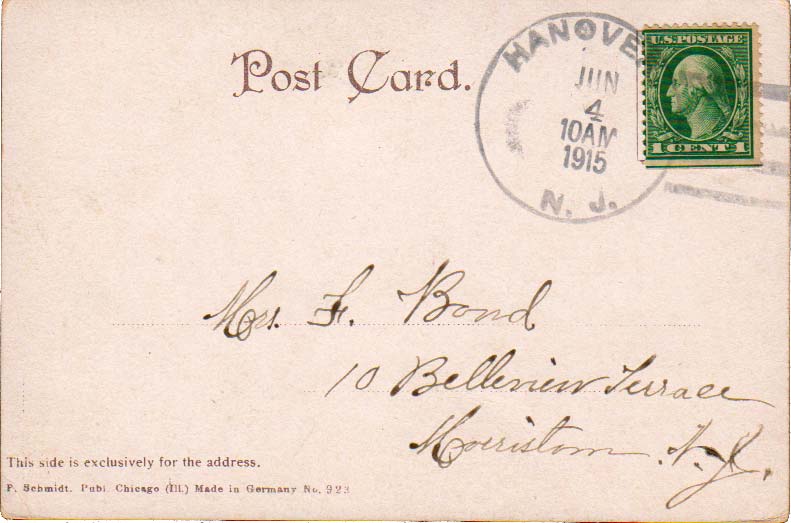 HANOVE
JUN
4
10AM
1915
N. J.
U.S. POSTAGE
1 CENT 1
Post Card.
Mrs. F. Bond
10 Belleview Terrace
Morristown N.J.
This side is exclusively for the address.
F. Schmidt. Publ Chicago (Ill.) Made in Germany No. 923